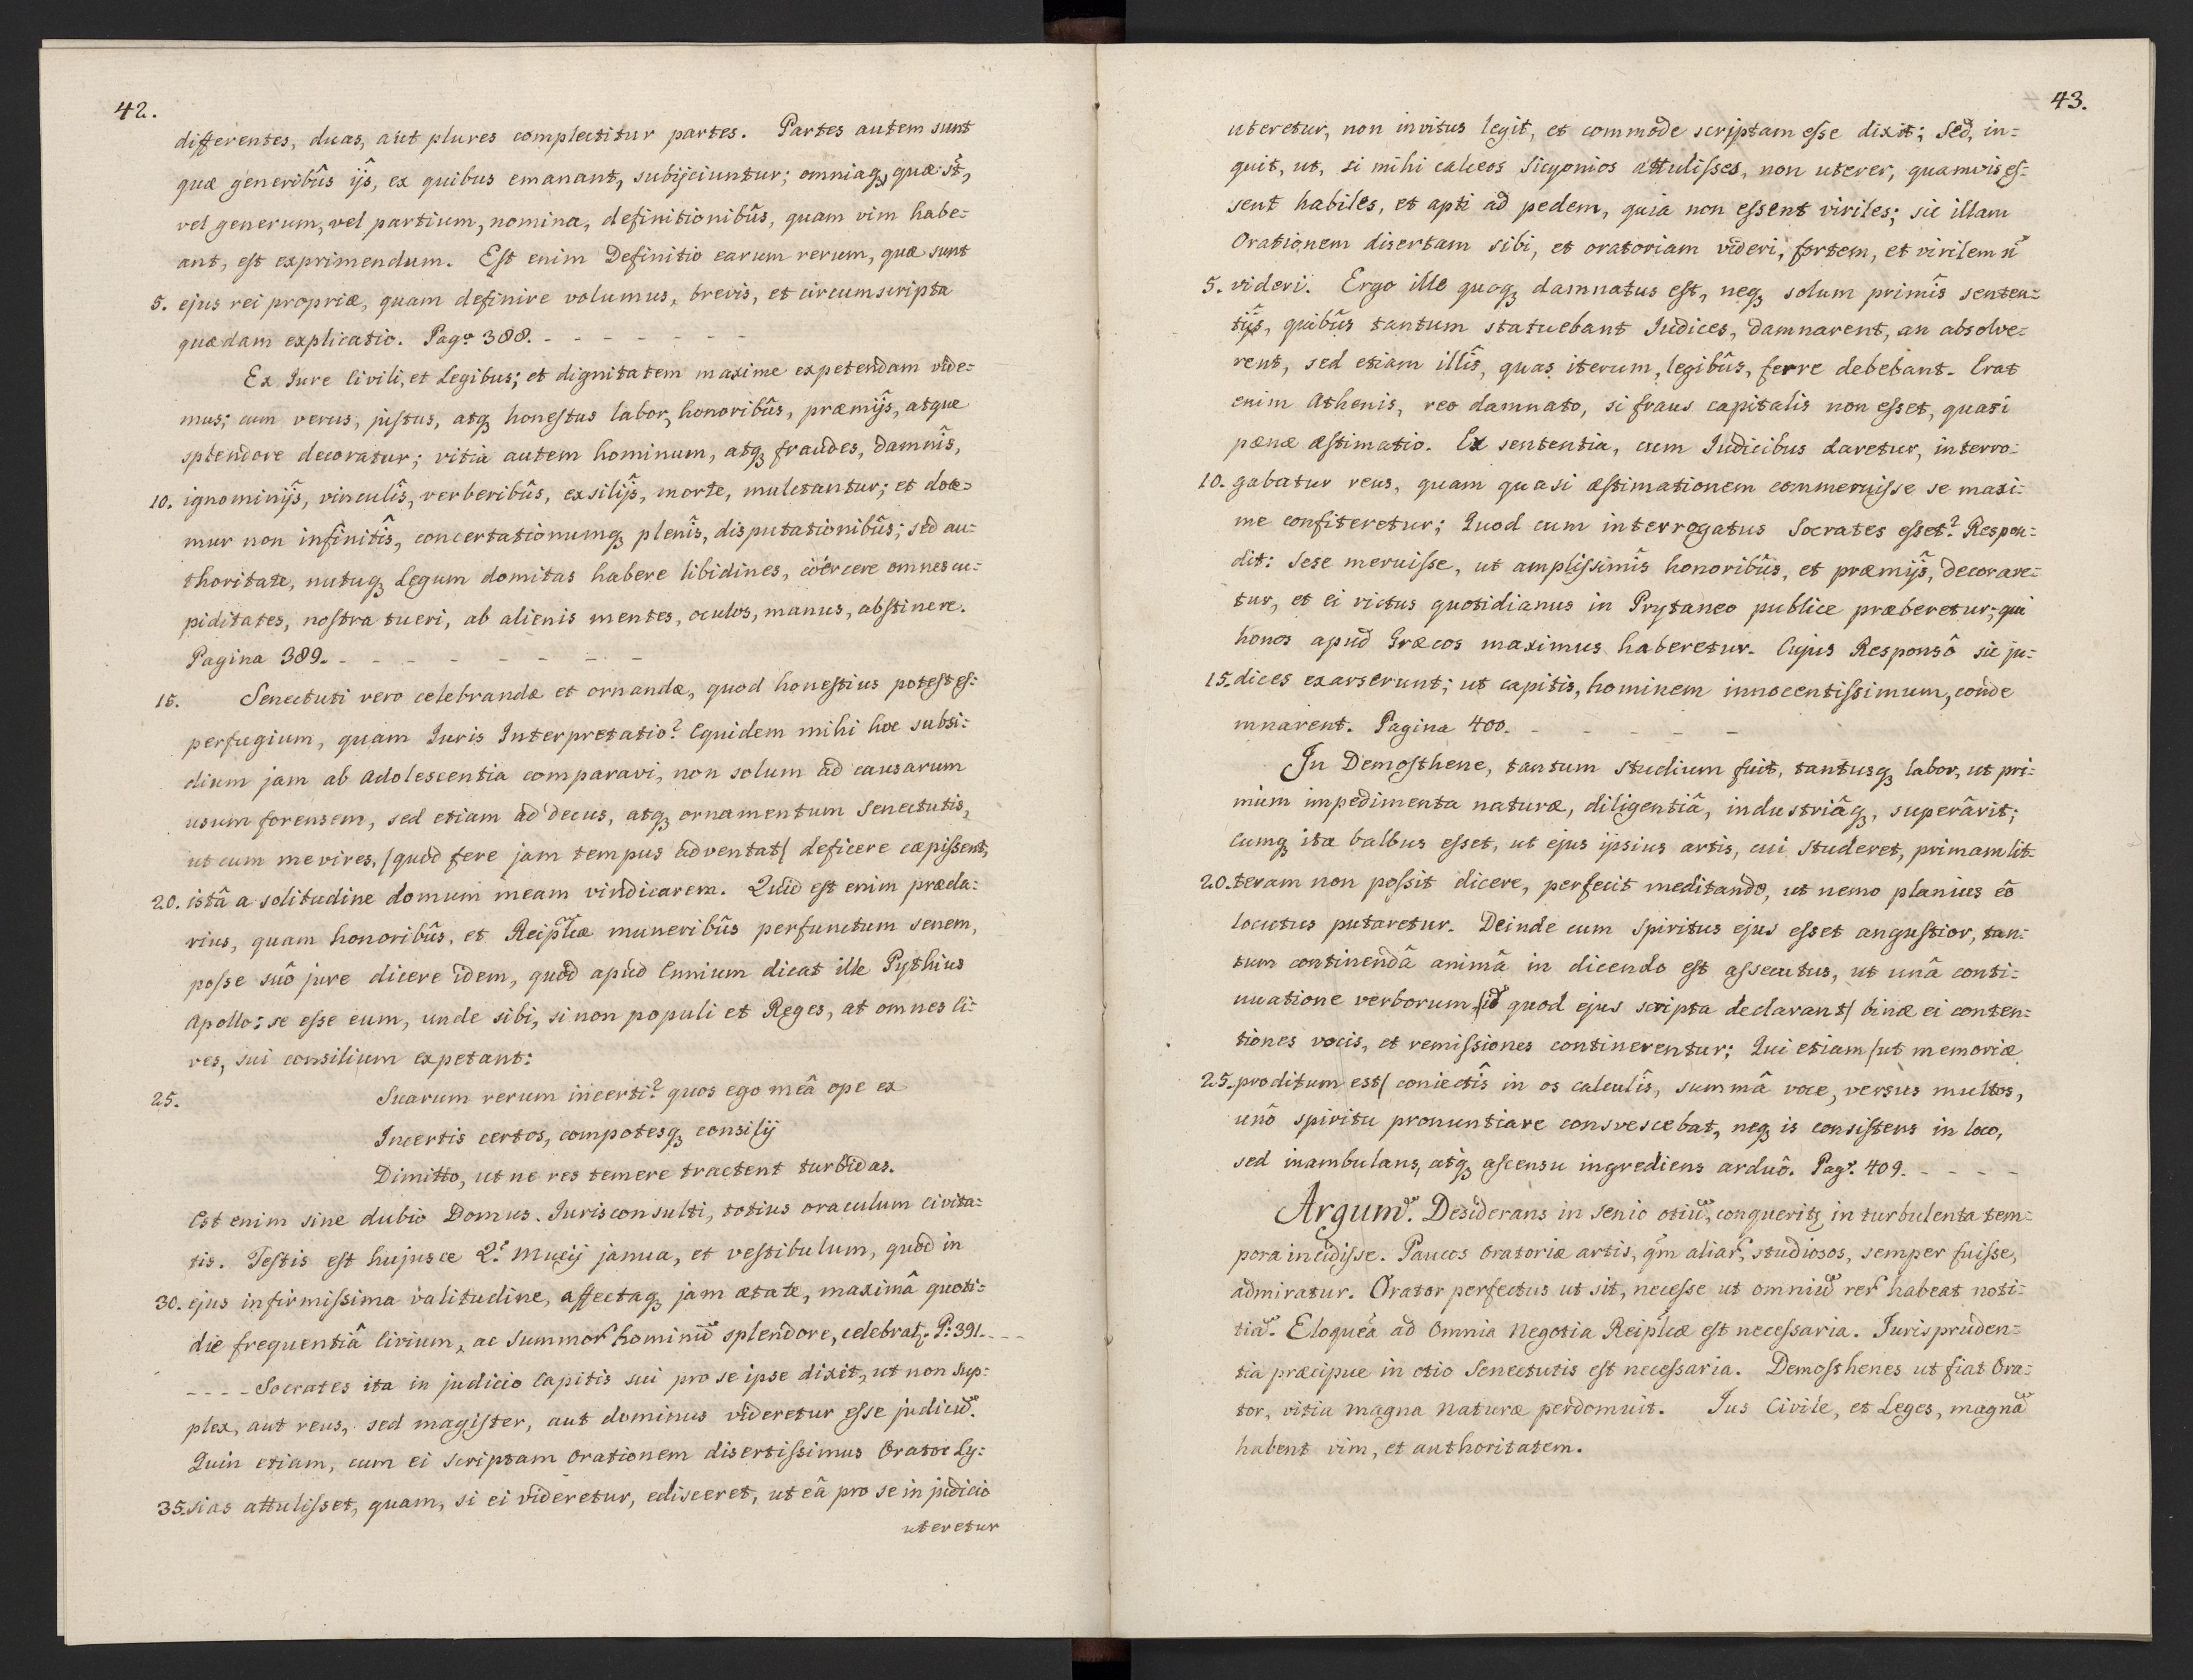 42.
differentes, duas, aut plures complectitur partes. Partes autem sunt
quæ generibûs ijs, ex quibus emanant, subijciuntur; omniaq, quæ st,
vel generum, vel partium, nomina, definitionibûs, quam vim habe=
ant, est exprimendum. Est enim Definitio earum rerum, quæ sunt
5. ejus rei propriæ, quam definire volumus, brevis, et circumscripta
quædam explicatio. Pagᵃ 388. - - - - - - -
Ex Jure Civili, et Legibus; et dignitatem maxime expetendam vide=
mus; cum verus, justus, atq honestus labor, honoribûs, præmijs, atque
splendore decoratur; vitia autem hominum, atq fraudes, damnîs,
10. ignominijs, vinculîs, verberibûs, exsilijs, morte, multantur; et doce=
mur non infinitîs, concertationumq plenîs, disputationibûs; sed au=
thoritate, nutuq Legum domitas habere libidines, coërcere omnes cu=
piditates, nostra tueri, ab alienis mentes, oculos, manus, abstinere.
Pagina 389. - - - - - - - -
15. Senectuti vero celebrandæ et ornandæ, quod honestius potest es=
perfugium, quam Juris Interpretatio? Equidem mihi hoc subsi=
dium jam ab Adolescentia comparavi, non solum ad causarum
usum forensem, sed etiam ad decus, atq ornamentum Senectutis,
ut cum me vires, /quod fere jam tempus adventat/ deficere cæpissent,
20. istâ a solitudine domum meam vindicarem. Quid est enim præcla=
rius, quam honoribûs, et Reiplicæ muneribûs perfunctum senem,
posse suô jure dicere idem, quod apud Ennium dicat ille Pythius
Apollo: se esse eum, unde sibi, si non populi et Reges, at omnes Ci=
ves, sui consilium expetant:
25. Suarum rerum incerti? quos ego meâ ope ex
Incertis certos, compotesq consilij
Dimitto, ut ne res temere tractent turbidas.
Est enim sine dubio Domus Jurisconsulti, totius oraculum Civita=
tis. Testis est hujusce Q. Mucij janua, et vestibulum, quod in
30. ejus infirmissima valitudine, affectaq jam ætate, maximâ quoti=
die frequentiâ Civium, ac Summor hominũ splendore, celebrat. P: 391. - - -
- - - - Socrates ita in judicio Capitis sui pro se ipse dixit, ut non Sup=
plex, aut reus, sed magister, aut dominus videretur esse judicũ.
Quin etiam, cum ei scriptam Orationem disertissimus Orator Ly=
35. sias attulisset, quam, si ei videretur, edisceret, ut eâ pro se in judicio
uteretur
43.
uteretur, non invitus legit, et commode scriptam esse dixit; Sed, in=
quit, ut, si mihi calceos Sicyonios attulisses, non uterer, quamvis es=
sent habiles, et apti ad pedem, quia non essent viriles; sic illam
Orationem disertam sibi, et oratoriam videri, fortem, et virilem ñ
5. videri. Ergo ille quoq damnatus est, neq solum primîs senten=
tijs, quibûs tantum statuebant Judices, damnarent, an absolve=
rent, sed etiam illîs, quas iterum, legibûs, ferre debebant. Erat
enim Athenis, reo damnato, si fraus capitalis non esset, quasi
pænæ æstimatio. Ex sententia, cum Judicibus daretur, interro=
10. gabatur reus, quam quasi æstimationem commeruisse se maxi=
me confiteretur; Quod cum interrogatus Socrates esset? Respon=
dit: Sese meruisse, ut amplissimîs honoribûs, et præmijs, decorare=
tur, et ei victus quotidianus in Prytaneo publice præberetur; qui
honos apud Græcos maximus haberetur. Cujus Responsô sic ju=
15. dices exarserunt; ut capitis, hominem innocentissimum, conde
mnarent. Pagina 400. - - - - -
In Demosthene, tantum studium fuit, tantusq labor, ut pri=
mum impedimenta naturæ, diligentiâ, industriâq, superârit;
Cumq ita balbus esset, ut ejus ipsius artis, cui studeret, primam lit=
20. teram non possit dicere, perfecit meditando, ut nemo planius eô
locutus putaretur. Deinde cum spiritus ejus esset angustior, tan=
tum continendâ animâ in dicendo est assecutus, ut unâ conti=
nuatione verborum /id quod ejus scripta declarant/ binæ ei conten=
tiones vocis, et remissiones continerentur; Qui etiam /ut memoriæ
25. proditum est/ coniectîs in os calculîs, summâ voce, versus multos,
unô spiritu pronuntiare consvescebat, neq is consistens in loco,
sed inambulans, atq ascensu ingrediens arduô. Pagᵃ. 409. - - - -
Argum̃. Desiderans in Senio otiũ, conquerit in turbulenta tem=
pora incidisse. Paucos Oratoriæ artis, qm aliar, studiosos, semper fuisse,
admiratur. Orator perfectus ut sit, necesse ut omniũ rer habeat noti=
tiã. Eloquẽa ad Omnia Negotia Reiplicæ est necessaria. Jurispruden=
tia præcipue in otio Senectutis est necessaria. Demosthenes ut fiat Ora=
tor, vitia magna Naturæ perdomuit. Jus Civile, et Leges, magnã
habent vim, et authoritatem.